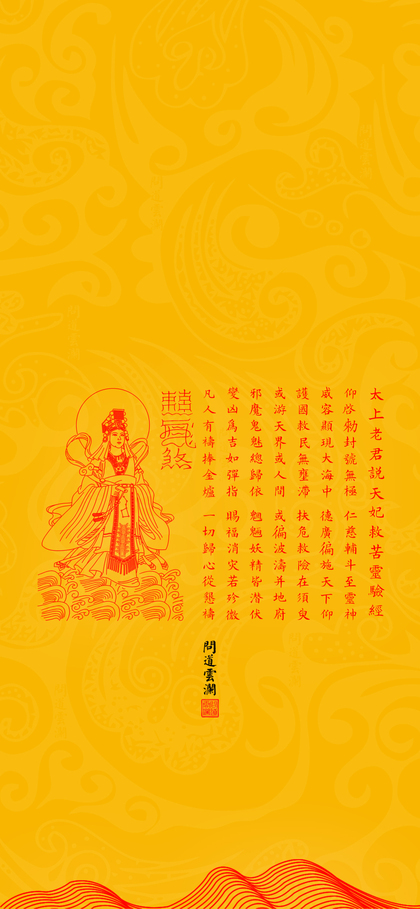 太上老君說天妃救苦靈驗經
仰啓勑封號無極 仁慈輔斗至靈神
威容顯現大海中 德廣徧施天下仰
護國救民無壅滯 扶危救險在須臾
或游天界或人間 或徧波濤并地府
邪魔鬼魅總歸依 魍魎妖精皆潛伏
變凶為吉如彈指 賜福消灾若殄微
凡人有禱捧金爐 一切歸心從懇禱
問道雲瀾